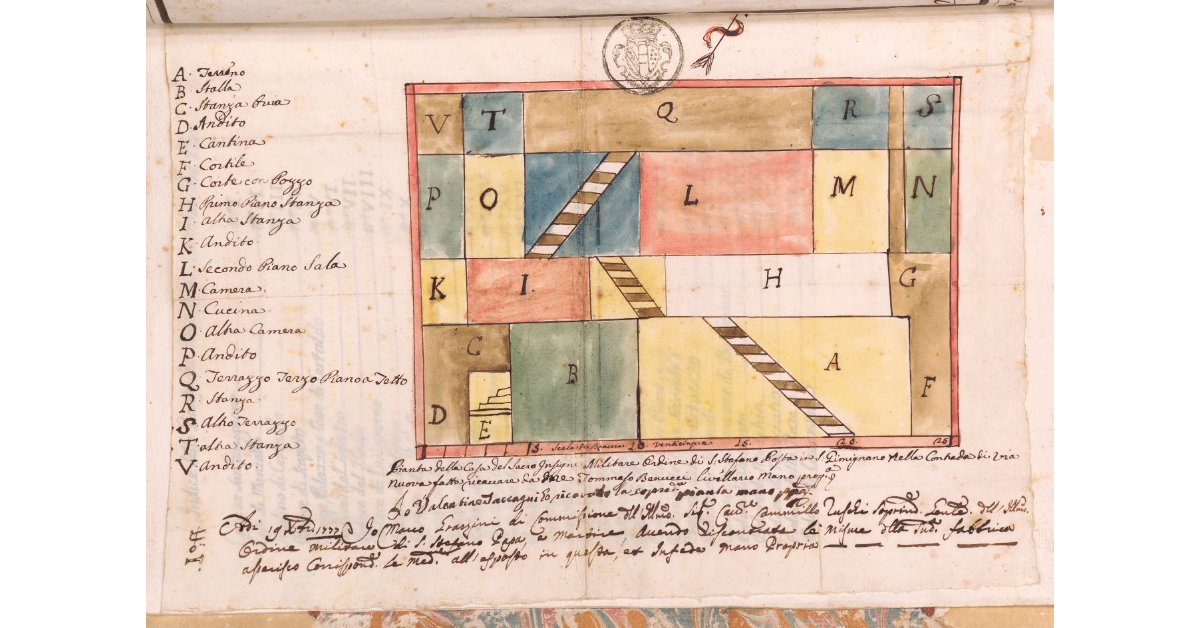 A. Terreno
B. Stalla
C. Stanza buia
D. Andito
E. Cantina
F. Cortile
G. Corte con Pozzo
H Primo Piano Stanza
I. Altra Stanza
K. Andito
L. Secondo Piano Sala
M. Camera.
N. Cucina
O. Altra Camera
P. Andito
Q. Terrazzo Terzo Piano a Tetto
R. Stanza
S. Altro Terrazzo
T. altra Stanza
V. Andito
V T Q R S
P O L M N
K I. H G
C B A
D E F
5. Scala di Braccia 10. Venticinque 15. 20. 25
Pianta della Casa del Sacro Insigne Militare Ordine di S. Stefano Posta in S. Gimignano Nella Contrada di Via
Nuova fatta ricavare da me Tommaso Benucci livellario Mano prop.a
Io Valentino ricavato la sopra pianta mano
Adi 19 1777 Io Marco Grazini di Commissione dell Illmo. Sig.
Ordine Militare di S. Stefano Papa, e Martire, Avendo riscontrate le misure della Sud. fabbrica
Corrispond. le med. all'esposto in questa, et in fede Mano Propria